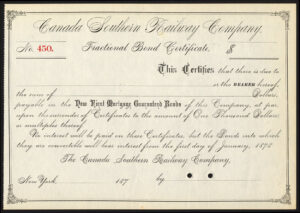 Canada Southern Railway Company.
No. 450. Fractional Bond Certificate. $
This Certifies that there is due to
or the BEARER hereof,
the sum of Dollars,
payable in the New First Mortgage Guaranteed Bonds of this Company, at par
upon the surrender of Certificates to the amount of One Thousand Dollars
or multiples thereof.
No interest will be paid on these Certificates, but the Bonds into which
they are convertible will bear interest from the first day of January, 1878
The Canada Southern Railway Company,
New York 187 by